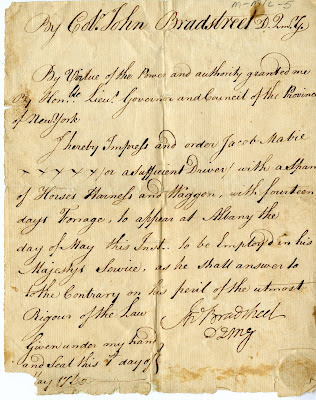 By Coll. John Bradstreet D.Q.M.G.
By Virtue of the Power and authority granted me
By Hon.ble Lieu.t Governor and Council of the Province
of New York
I hereby Impress and order Jacob Mabie
x x x x x or a Sufficient Driver with a Span
of Horses Harness and Waggon, with fourteen
days Forrage, to appear at Albany the
day of May this Inst. to be Employd in his
Majestys Service, as he shall answer to
to the Contrary on his peril of the utmost
Rigour of the Law
Jno Bradstreet
DQMG
Given under my hand
and Seal this day of
ay 17